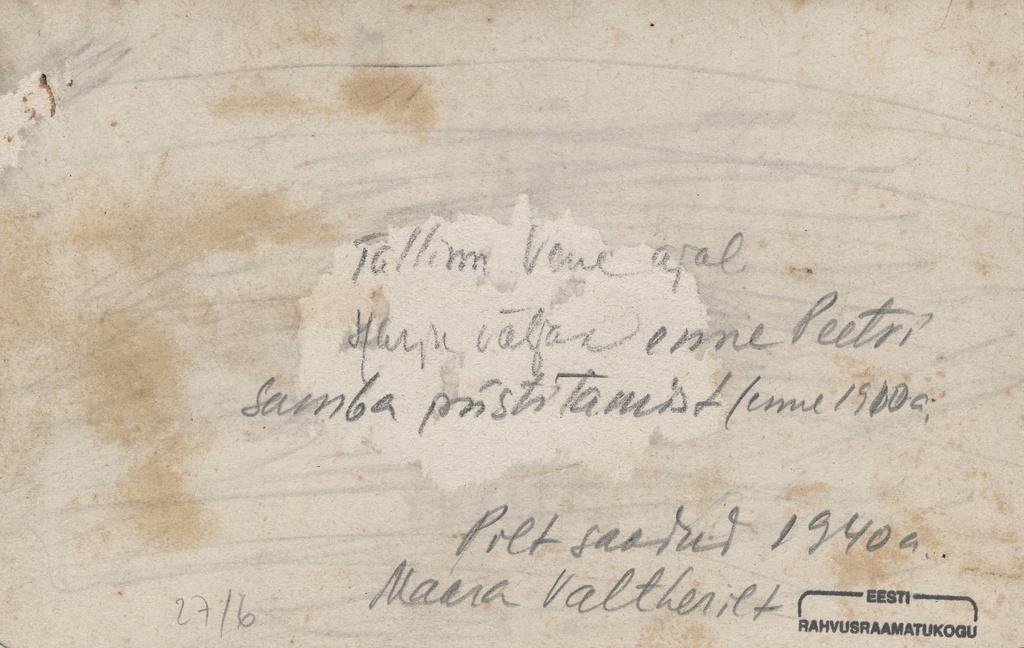 Tallinn Vene ajal
Harju väljak enne Peetri
samba püstitamist (enne 1910a.
Pilt saadud 1940a.
Maara Valtherilt
27/6
EESTI
RAHVUSRAAMATUKOGU